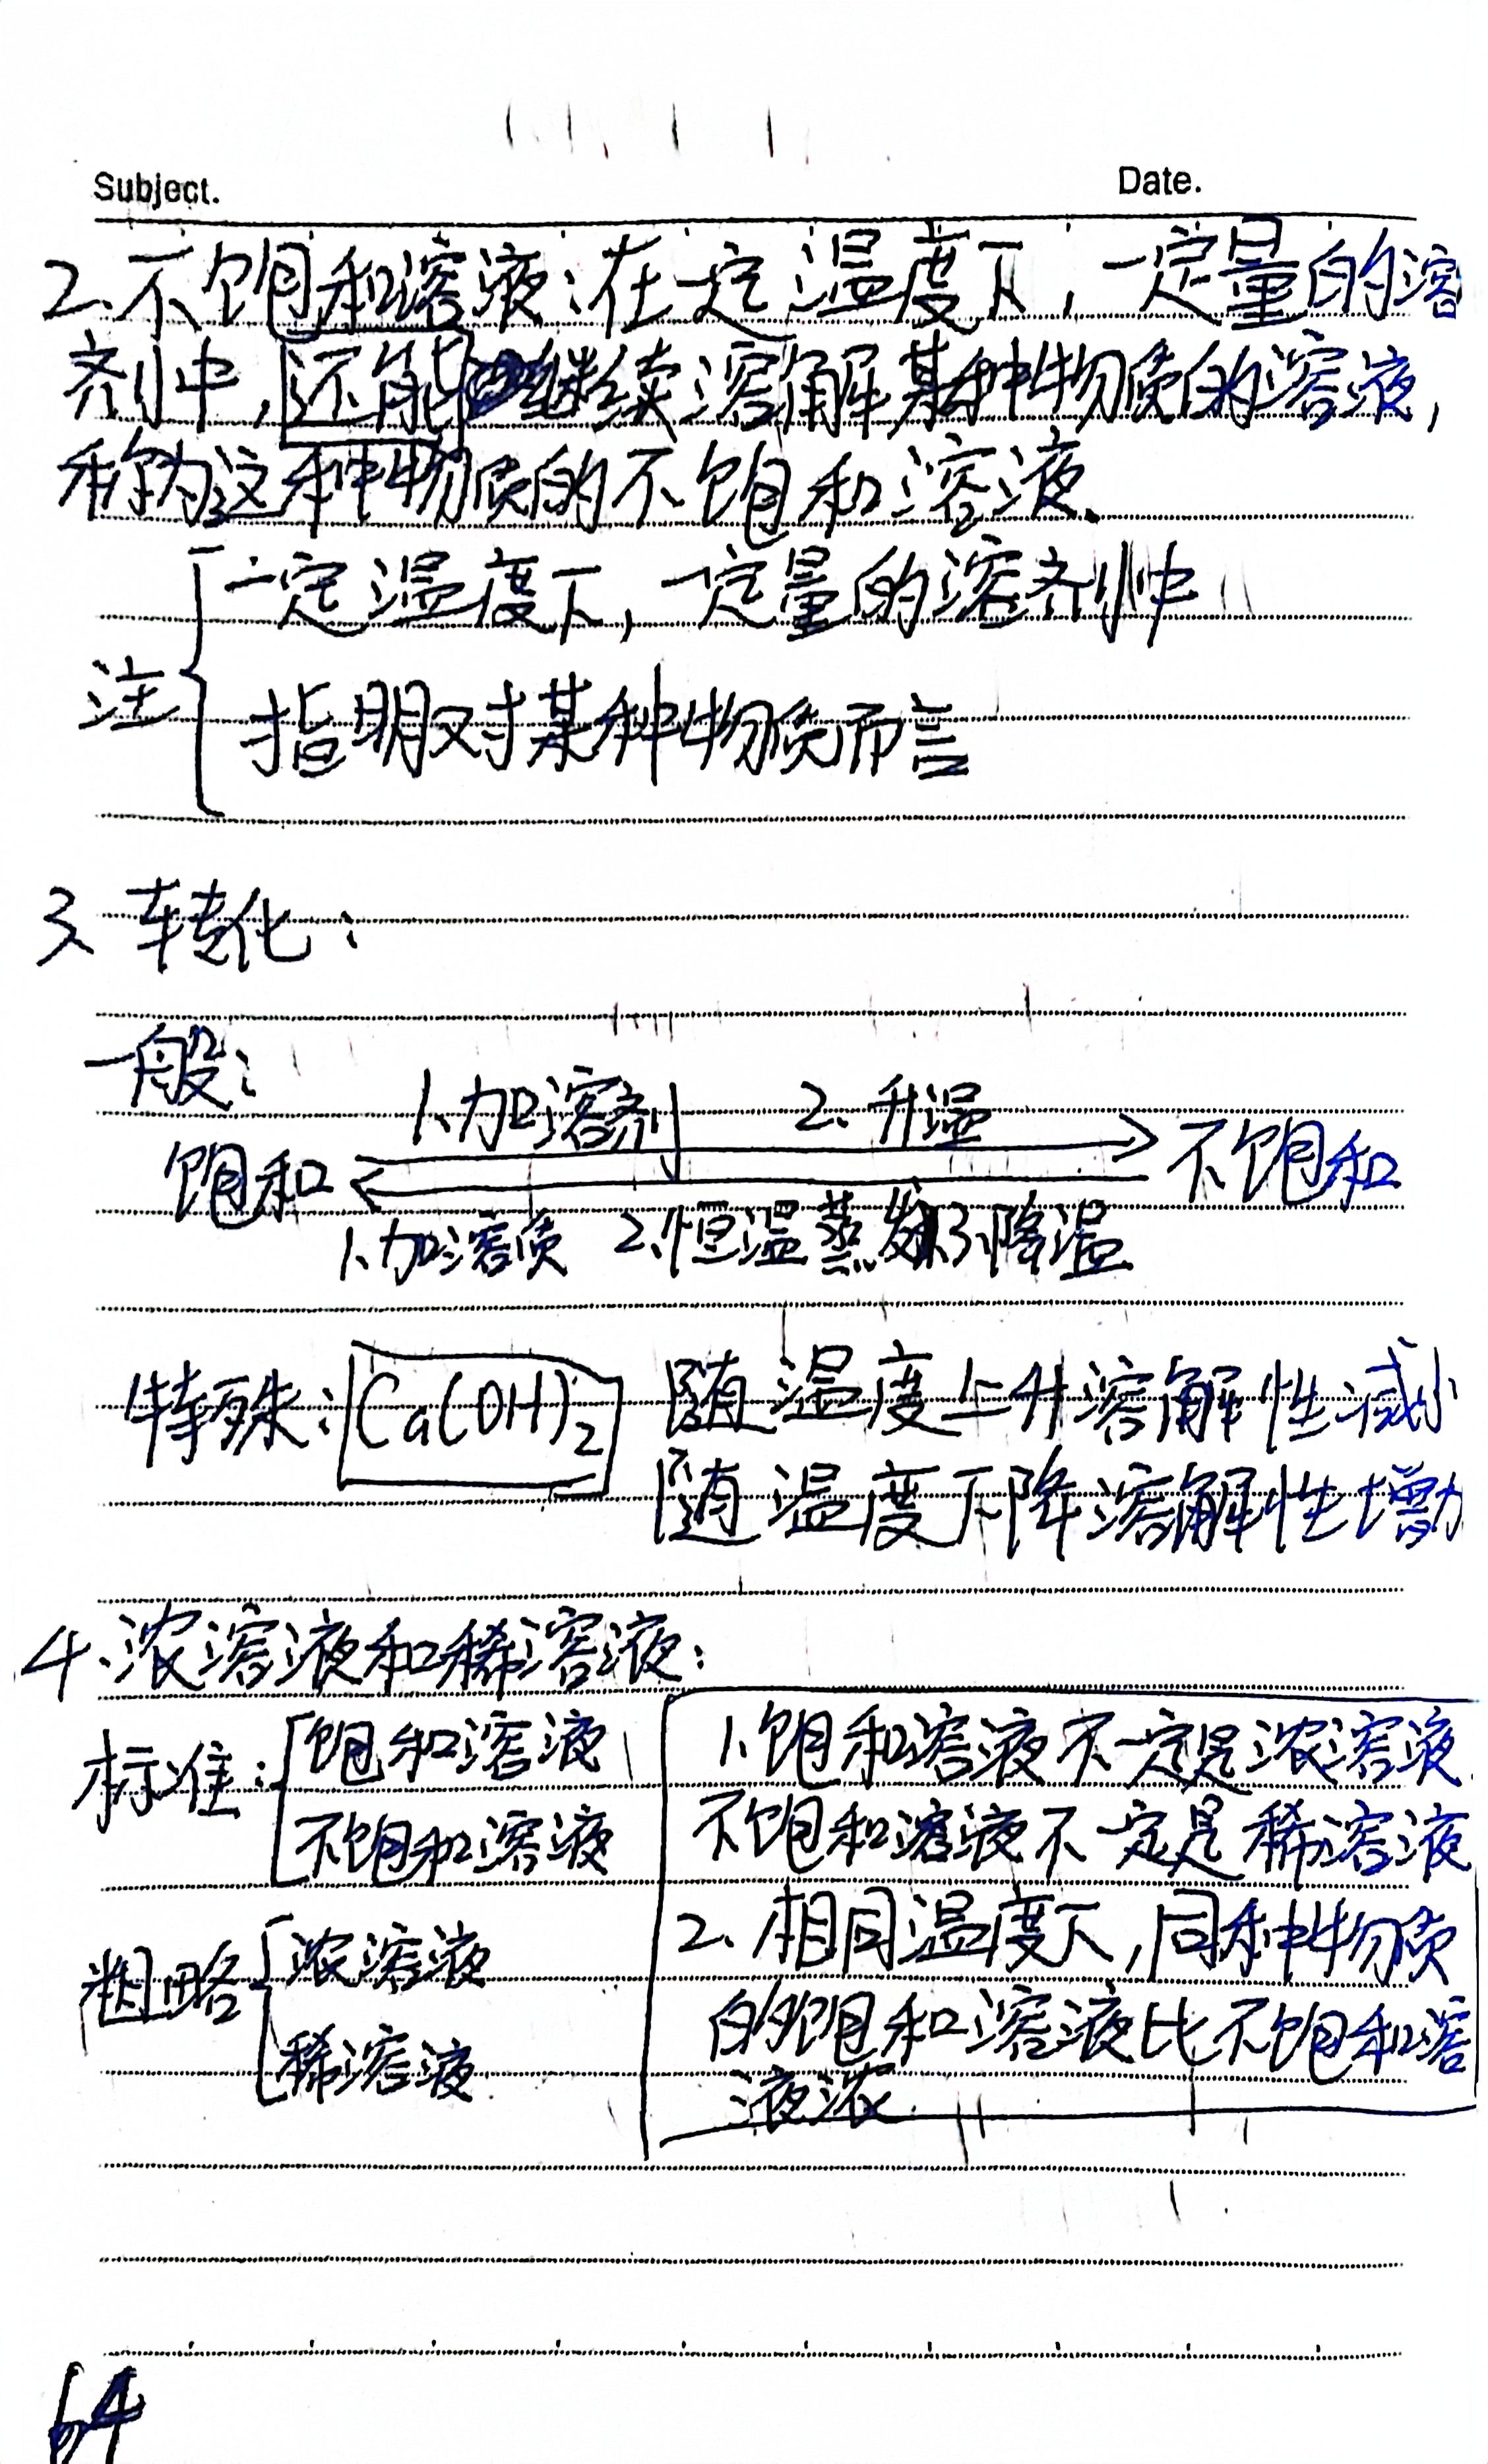 Subject. Date.
2.不饱和溶液:在一定温度下,一定量的溶
剂中,还能继续溶解某种物质的溶液,
称为这种物质的不饱和溶液、
注 一定温度下,一定量的溶剂中
指明对某种物质而言
3、转化:
一般:
1.加溶剂 2、升温
饱和 不饱和
1、加溶质 2、恒温蒸发 3、降温
特殊: Ca(OH)₂ 随温度上升溶解性减小
随温度下降溶解性增加
4、浓溶液和稀溶液:
标准: 饱和溶液
不饱和溶液
粗略 浓溶液
稀溶液
1、饱和溶液不一定是浓溶液
不饱和溶液不一定是稀溶液
2、相同温度下,同种物质
的饱和溶液比不饱和溶
液浓.
64